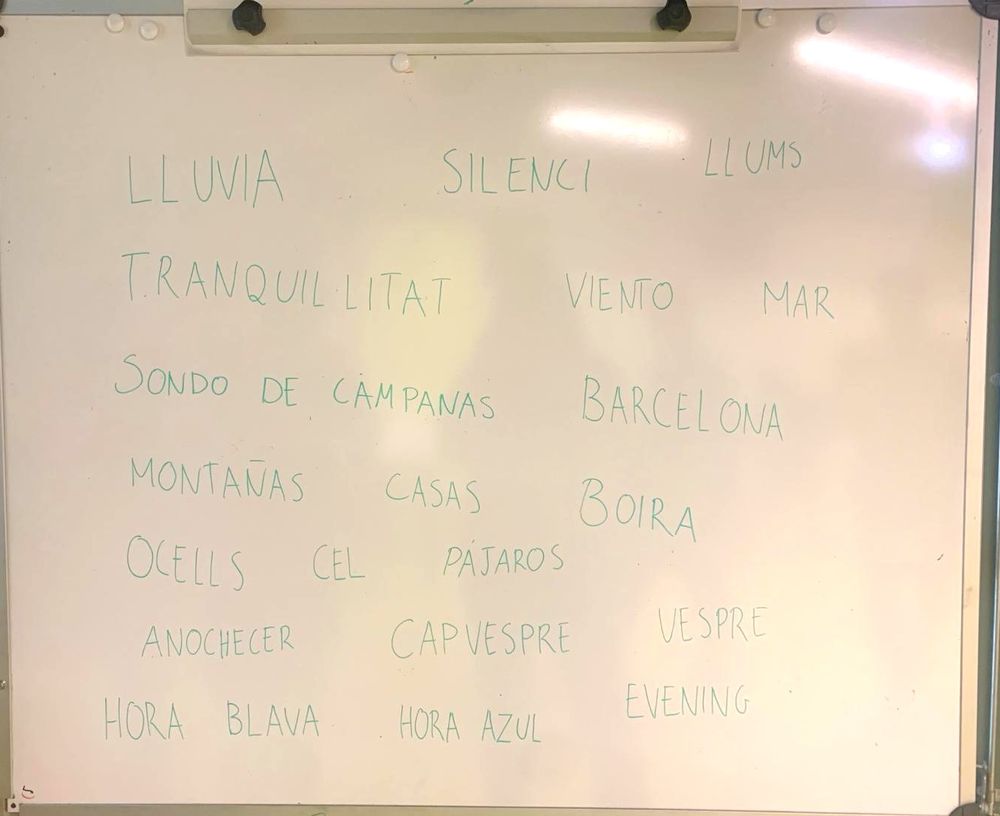 LLUVIA SILENCI LLUMS
TRANQUIL·LITAT VIENTO MAR
SONDO DE CAMPANAS BARCELONA
MONTAÑAS CASAS BOIRA
OCELLS CEL PÁJAROS
ANOCHECER CAPVESPRE VESPRE
HORA BLAVA HORA AZUL EVENING